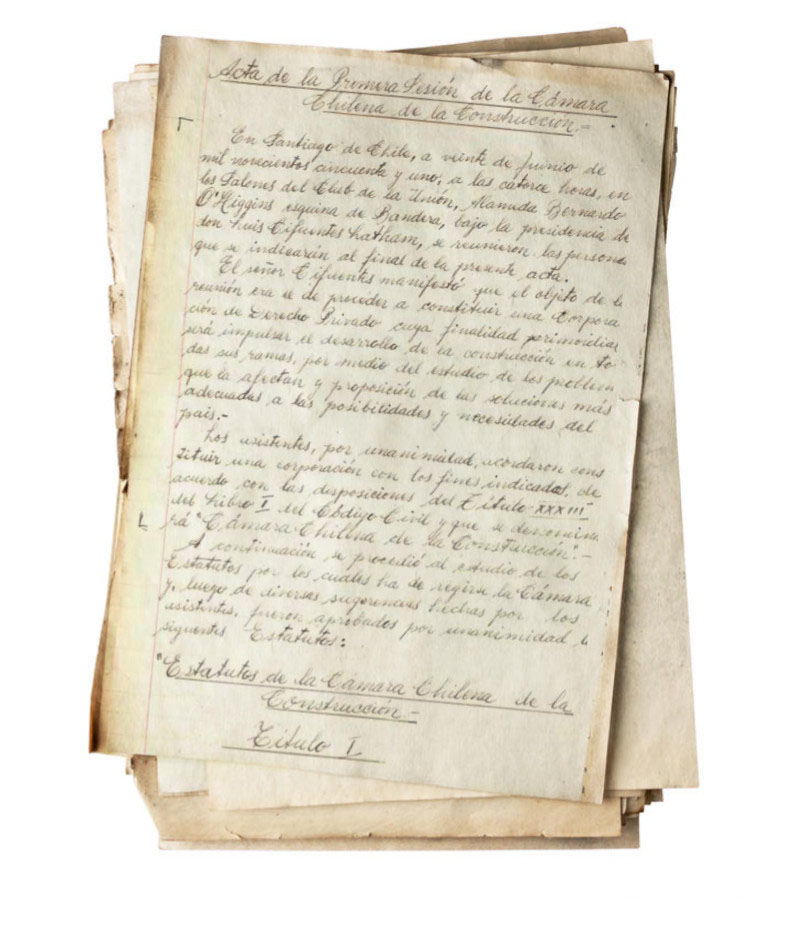 Acta de la Primera Sesión de la Cámara
Chilena de la Construcción.-
En Santiago de Chile, a veinte de Junio de
mil novecientos cincuenta y uno, a las catorce horas, en
los Salones del Club de la Unión, Alameda Bernardo
O'Higgins esquina de Bandera, bajo la presidencia de
don Luis Cifuentes Latham, se reunieron las persona
que se indicarán al final de la presente acta.
El señor Cifuentes manifestó que el objeto de la
reunión era el de proceder a constituir una Corpora
ción de Derecho Privado cuya finalidad primordial
será impulsar el desarrollo de la construcción en to-
das sus ramas, por medio del estudio de los problem
que la afectan y proposición de las soluciones más
adecuadas a las posibilidades y necesidades del
país.-
Los asistentes, por unanimidad, acordaron cons
tituir una corporación con los fines indicados, de
acuerdo con las disposiciones del Título XXXIII
del Libro I del Código Civil y que se denomina
rá "Cámara Chilena de la Construcción".-
A continuación se procedió al estudio de los
Estatutos por los cuales ha de regirse la Cámara
y, luego de diversas sugerencias hechas por los
asistentes, fueron aprobados por unanimidad l
siguientes Estatutos:
"Estatutos de la Cámara Chilena de la
Construcción-
Título I